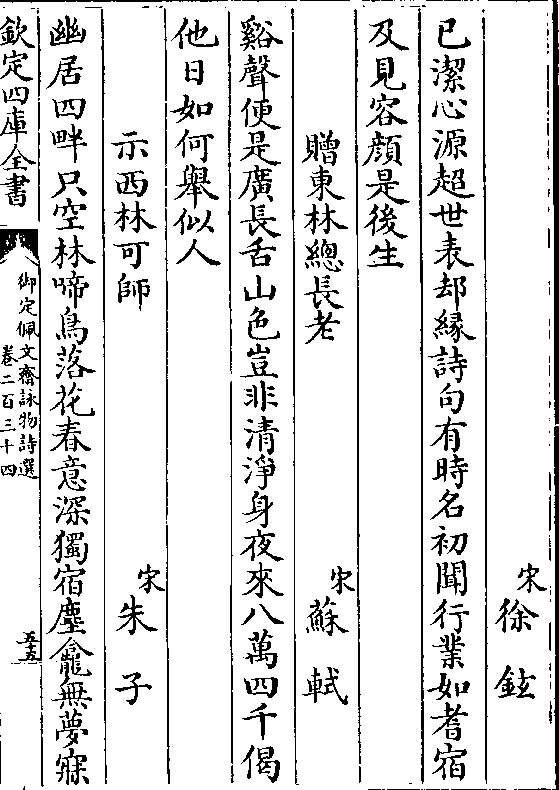 宋徐鉉
已潔心源超世表却緣詩句有時名初聞行業如耆宿
及見容顔是後生
贈東林總長老
宋蘇軾
谿聲便是廣長舌山色豈非清淨身夜來八萬四千偈
他日如何舉似人
示西林可師
宋朱子
幽居四畔只空林啼鳥落花春意深獨宿塵龕無夢寐
欽定四庫全書
御定佩文齋詠物詩選
卷二百三十四
五十五